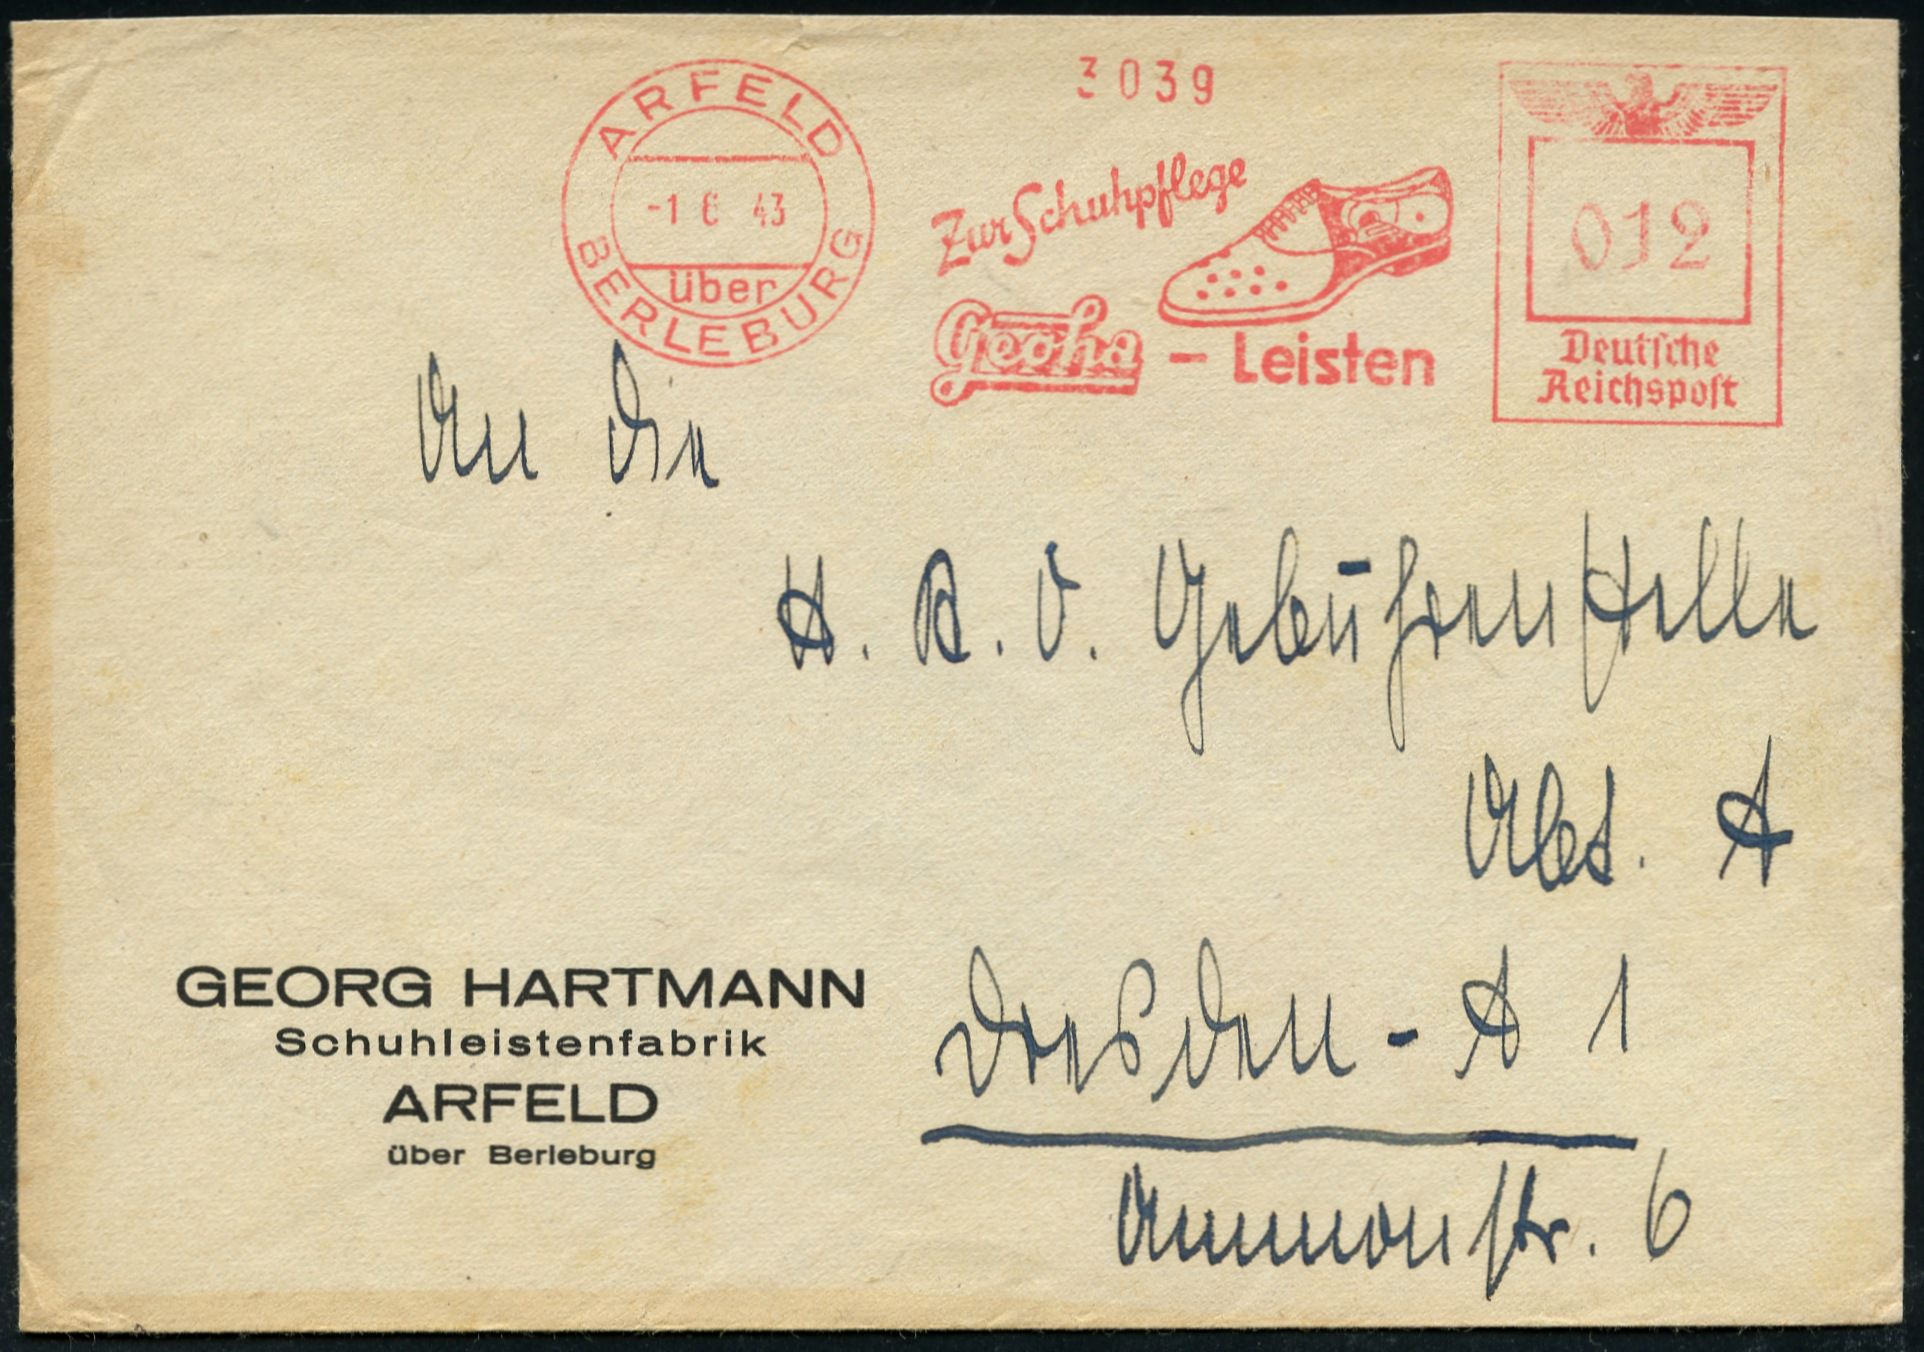 3039
ARFELD
-1 6 43
über
BERLEBURG
Zur Schuhpflege
Geoha - Leisten
012
Deutsche
Reichspost
An die
H. A. V. Gebührenstelle
Abt. A
Dresden - A 1
Ammonstr. 6
GEORG HARTMANN
Schuhleistenfabrik
ARFELD
über Berleburg